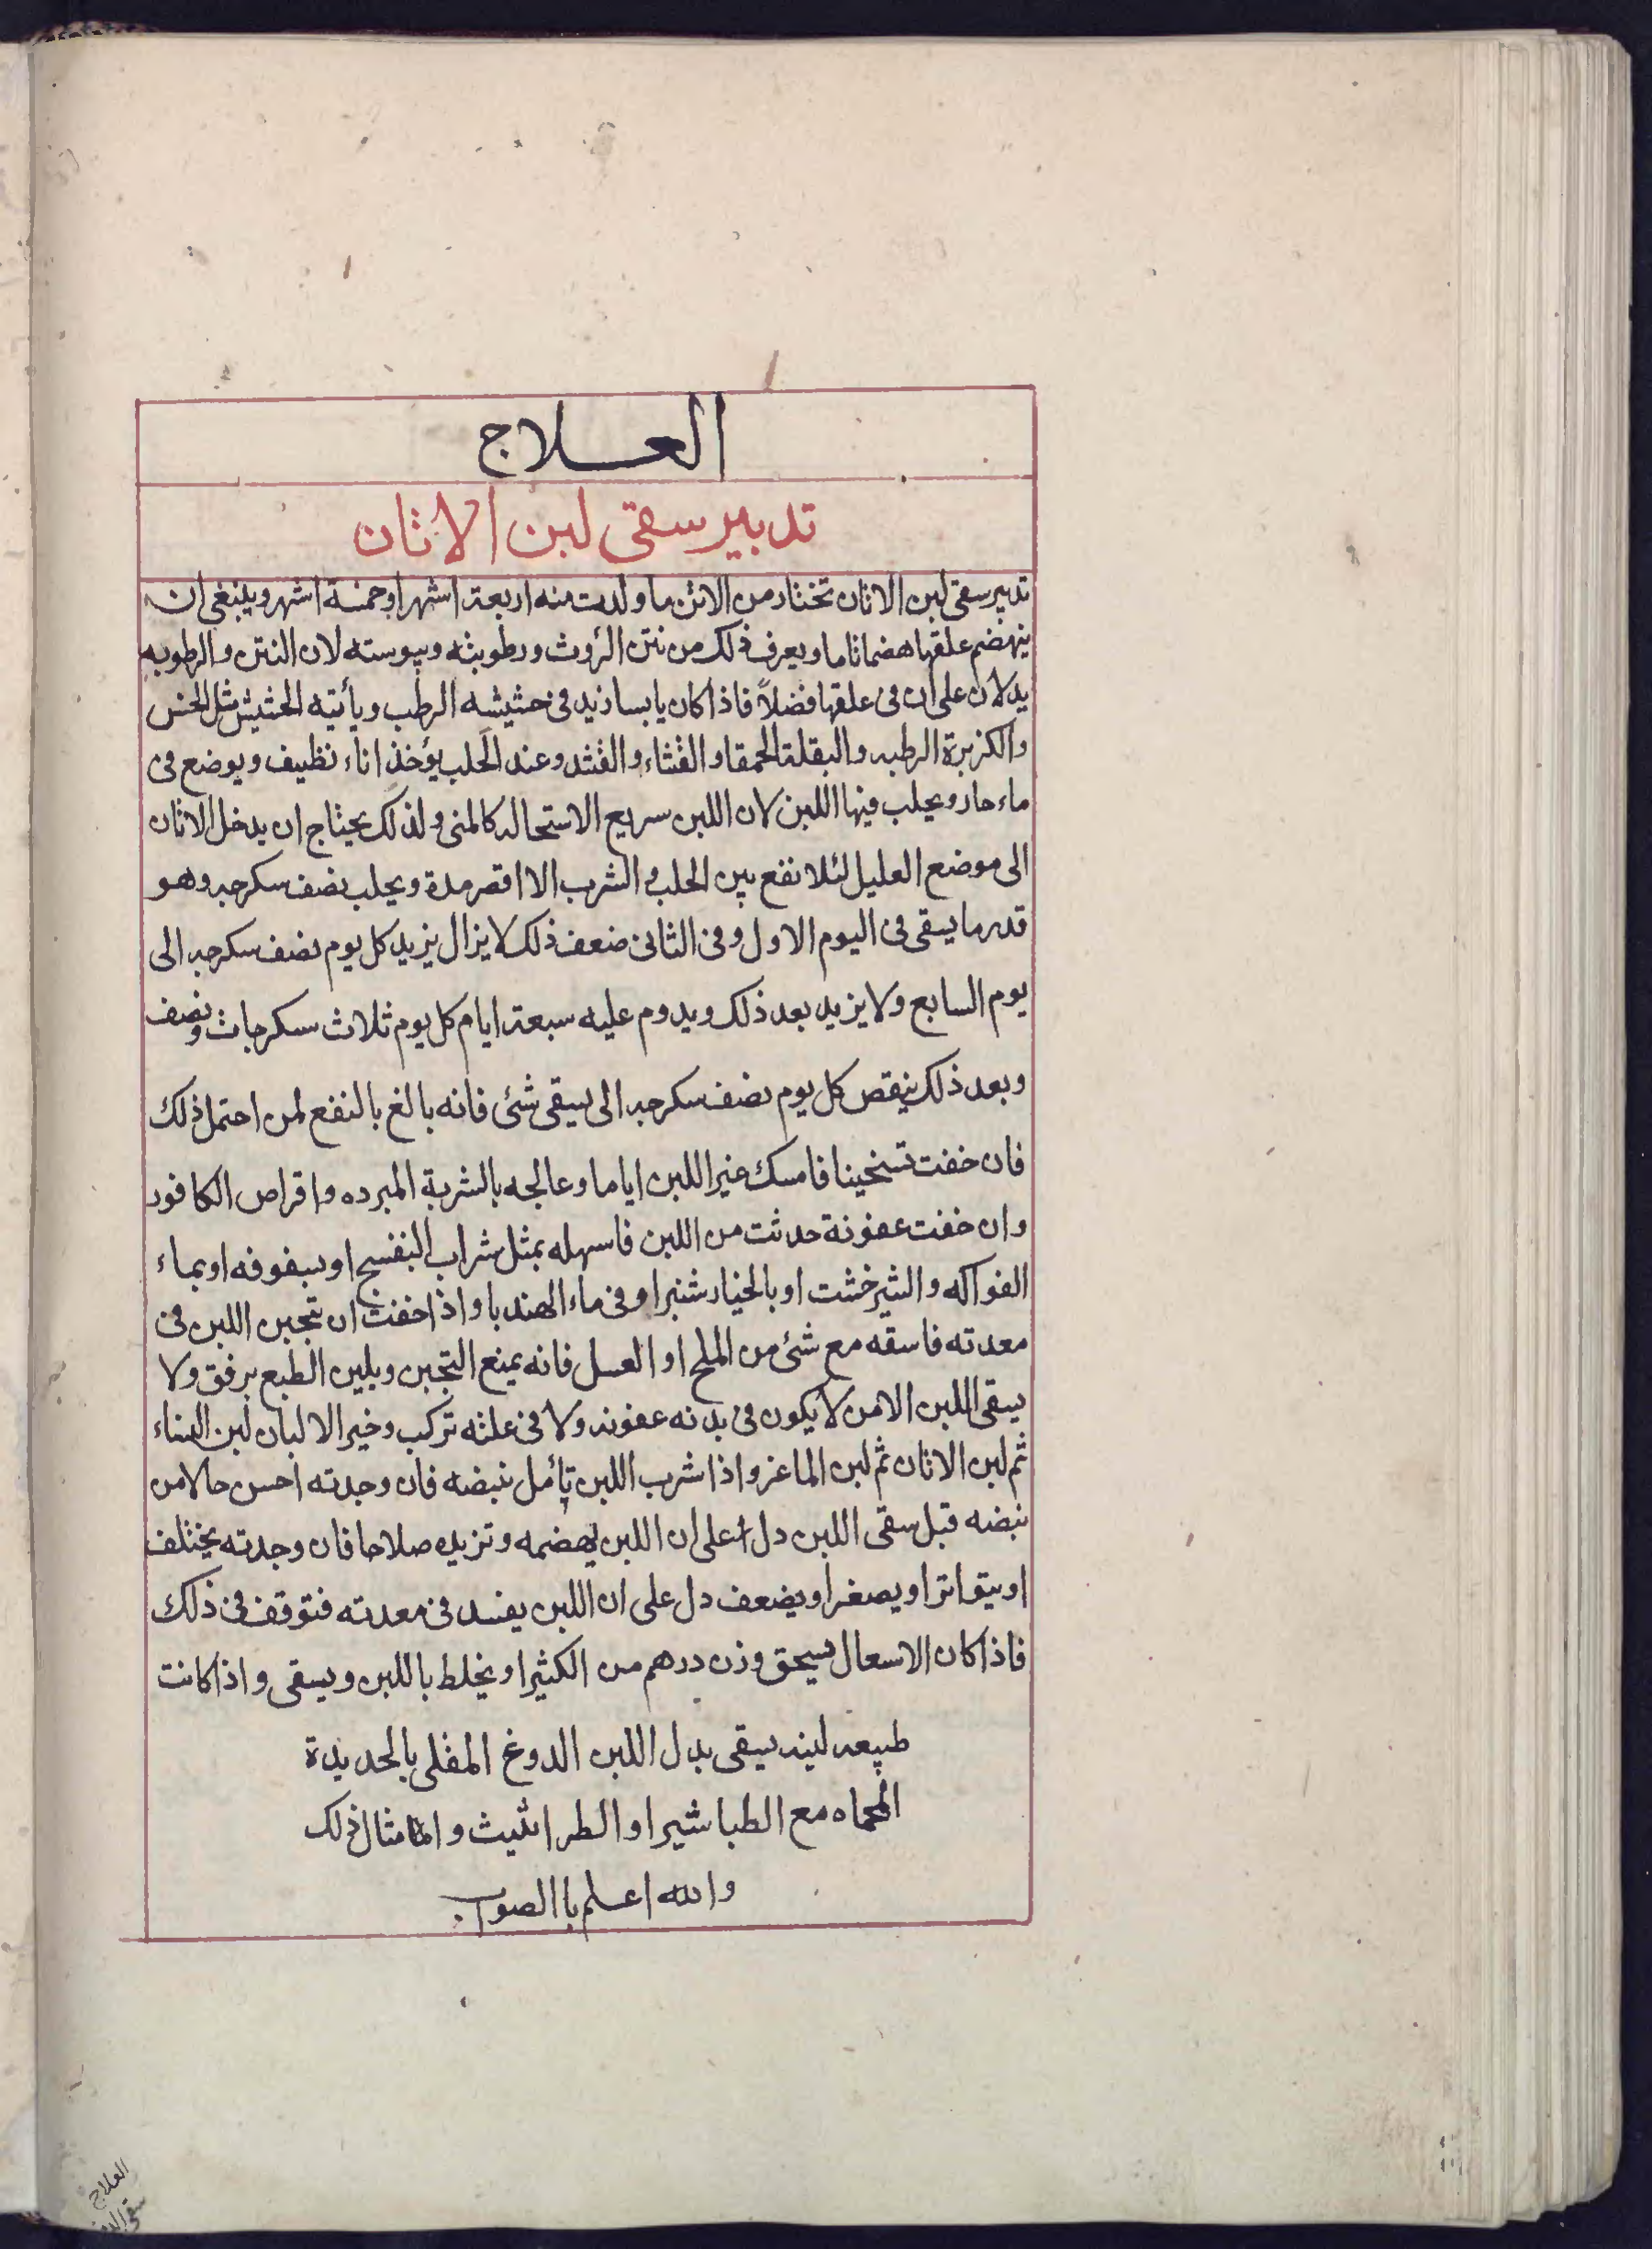 العـــلاج
تدبير سقى لبن الاتان
تدبير سقى لبن الاتان تختار من الاتن ما ولدت منه اربعة اشهر او خمسة اشهر وينبغى ان
ينهضم علفها هضما تاما ويعرف ذلك من نتن الروث ورطوبته ويبوسته لان النتن والرطوبه
يدلان على ان فى علفها فضلاً فاذا كان يابسا زيد فى حشيشه الرطب ويأتيه الحشيش مثل الخس
والكزبرة الرطبه والبقلة الحمقا والقثاء والقثد وعند الحلب يؤخذ اناء نظيف ويوضع فى
ماء حار ويحلب فيها اللبن لان اللبن سريع الاستحاله كالمنى ولذلك يحتاج ان يدخل الاتان
الى موضع العليل لئلا تقع بين الحلب والشرب الا اقصر مدة ويحلب نصف سكرجه وهو
قدر ما يسقى فى اليوم الاول وفى الثانى ضعف ذلك لا يزال يزيد كل يوم نصف سكرجه الى
يوم السابع ولا يزيد بعد ذلك ويدوم عليه سبعة ايام كل يوم ثلاث سكرجات ونصف
وبعد ذلك ينقص كل يوم نصف سكرجه الى يبقى شئ فانه بالغ بالنفع لمن احتمل ذلك
فان خفت تسخينا فامسك عنير اللبن اياما وعالجه بالشربة المبرده واقراص الكافور
وان خفت عفونة حدثت من اللبن فاسهله بمثل شراب البنفسج او سفوفه او بماء
الفواكه والشيرخشت او بالخيارشنبر او فى ماء الهندبا واذا خفت ان تجبن اللبن فى
معدته فاسقه مع شئ من الملح او العسل فانه يمنع التجبن ويلين الطبع برفق ولا
يسقى اللبن الا من لا يكون فى بدنه عفونه ولا فى علته تركب وخير الالبان لبن النساء
ثم لبن الاتان ثم لبن الماعز واذا شرب اللبن تأمل نبضه فان وجدته احسن حالا من
نبضه قبل سقى اللبن دل على ان اللبن يهضمه وتزيده صلاحا فان وجدته يختلف
او يتواتر او يصغر او يضعف دل على ان اللبن يفسد فى معدته فتوقف فى ذلك
فاذا كان الاسعال يسحق وزن درهم من الكثيرا ويخلط باللبن ويسقى واذا كانت
طبيعه لينه يسقى بدل اللبن الدوغ المقلى بالحديدة
المحماه مع الطباشير او الطراثيث وامثال ذلك
والله اعلم باالصوب
العلاج